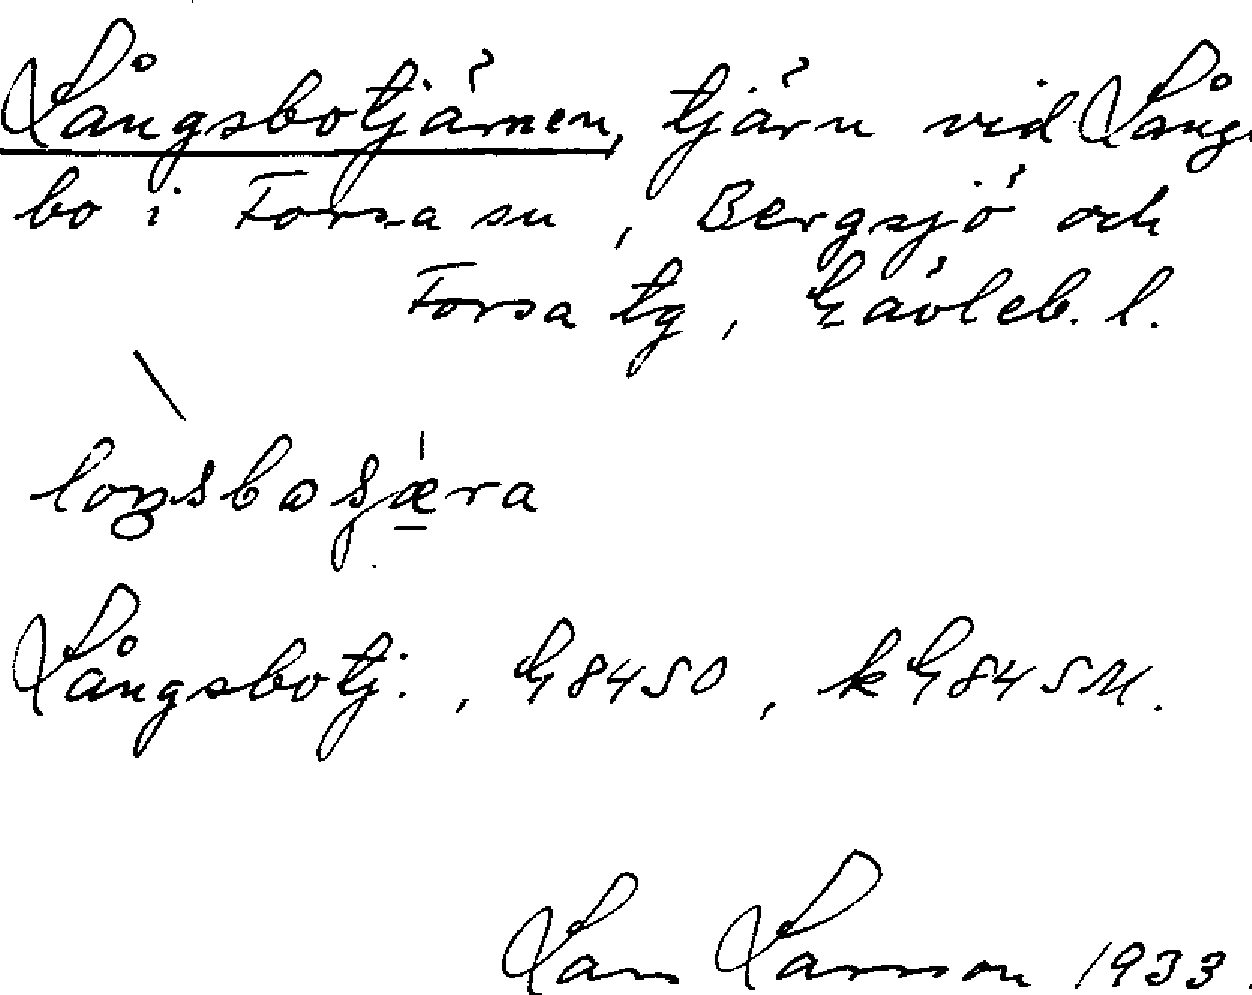 Långsbotjärnen, tjärn vid Långs
bo i Forsa sn, Bergsjö och
Forsa tg, Gävleb. l.
Långsbotj., G 84 SO, k G 84 SM.
Lars Larsson 1933.